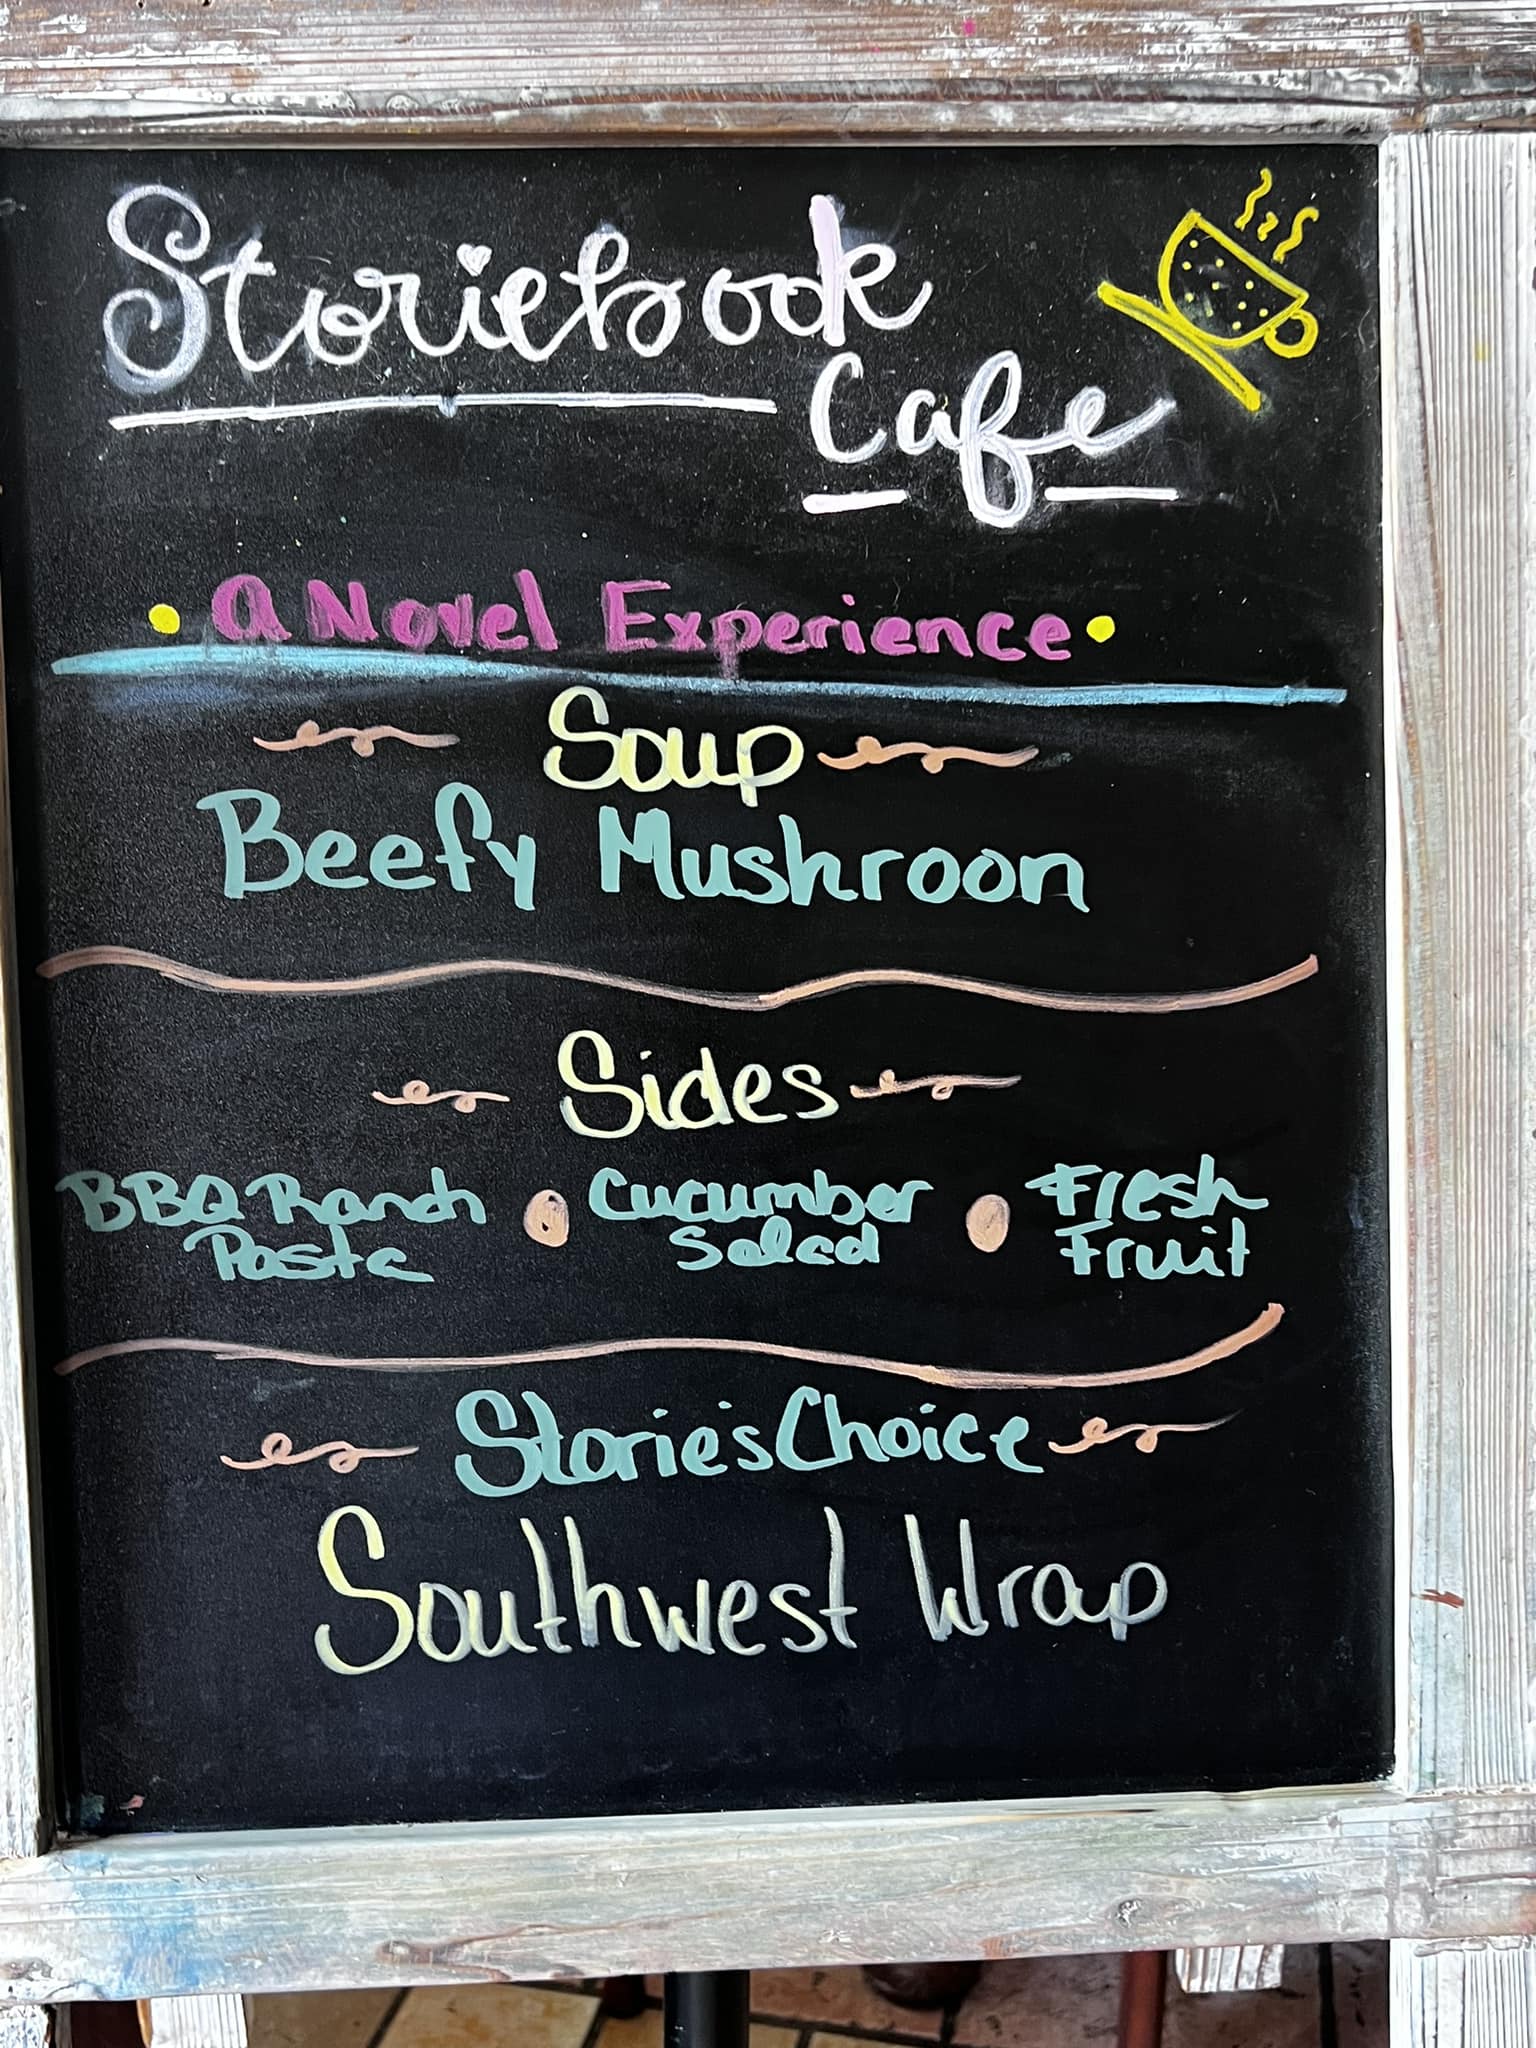 Storiebook
Cafe
a Novel Experience
Soup
Beefy Mushroon
Sides
BBQ Ranch
Pasta
Cucumber
Salad
Fresh
Fruit
Storie's Choice
Southwest Wrap